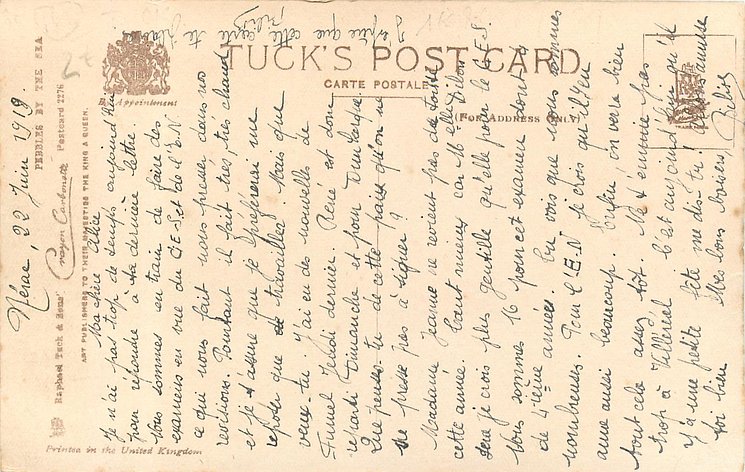 TUCK'S POST CARD
CARTE POSTALE
By Appointment
(FOR ADDRESS ONLY)
TRADE MARK
PEBBLES BY THE SEA
Raphael Tuck & Sons' Crayon Carbonette Postcard 2276
ART PUBLISHERS TO THEIR MAJESTIES THE KING & QUEEN.
Printed in the United Kingdom
J'espère que cette carte te plaira
Nérac, 22 Juin 1919.
Ma chère
Je n'ai pas trop de temps aujourd'hui
pour répondre à ta dernière lettre.
Nous sommes en train de faire des
examens en vue du C.E.S. et de l'E.N
ce qui nous fait nous presser dans nos
révisions. Pourtant il fait très, très chaud
et je t'assure que je préfèrerai me
reposer que de travailler. Mais que
veux-tu. J'ai eu des nouvelles de
Fumel Jeudi dernier. René est donc
reparti Dimanche et pour Dunkerque
Que penses-tu de cette paix qu'on ne
se presse pas à signer?
Madame Jeanne ne revient pas
cette année. Tant mieux car Melle
sera je crois plus gentille qu'elle pour le C.E.S.
Nous sommes 16 pour cet examen dont 7
de 4ième année. Tu vois que nous sommes
nombreuses. Pour l'E.N je crois qu'il y en
aura aussi beaucoup. Enfin on verra bien
tout cela assez tôt. Ne t'ennuie pas
trop à Villeréal. C'est aujourd'hui qu'il
y a une petite fête me dis-tu.
toi bien. Mes bons baisers